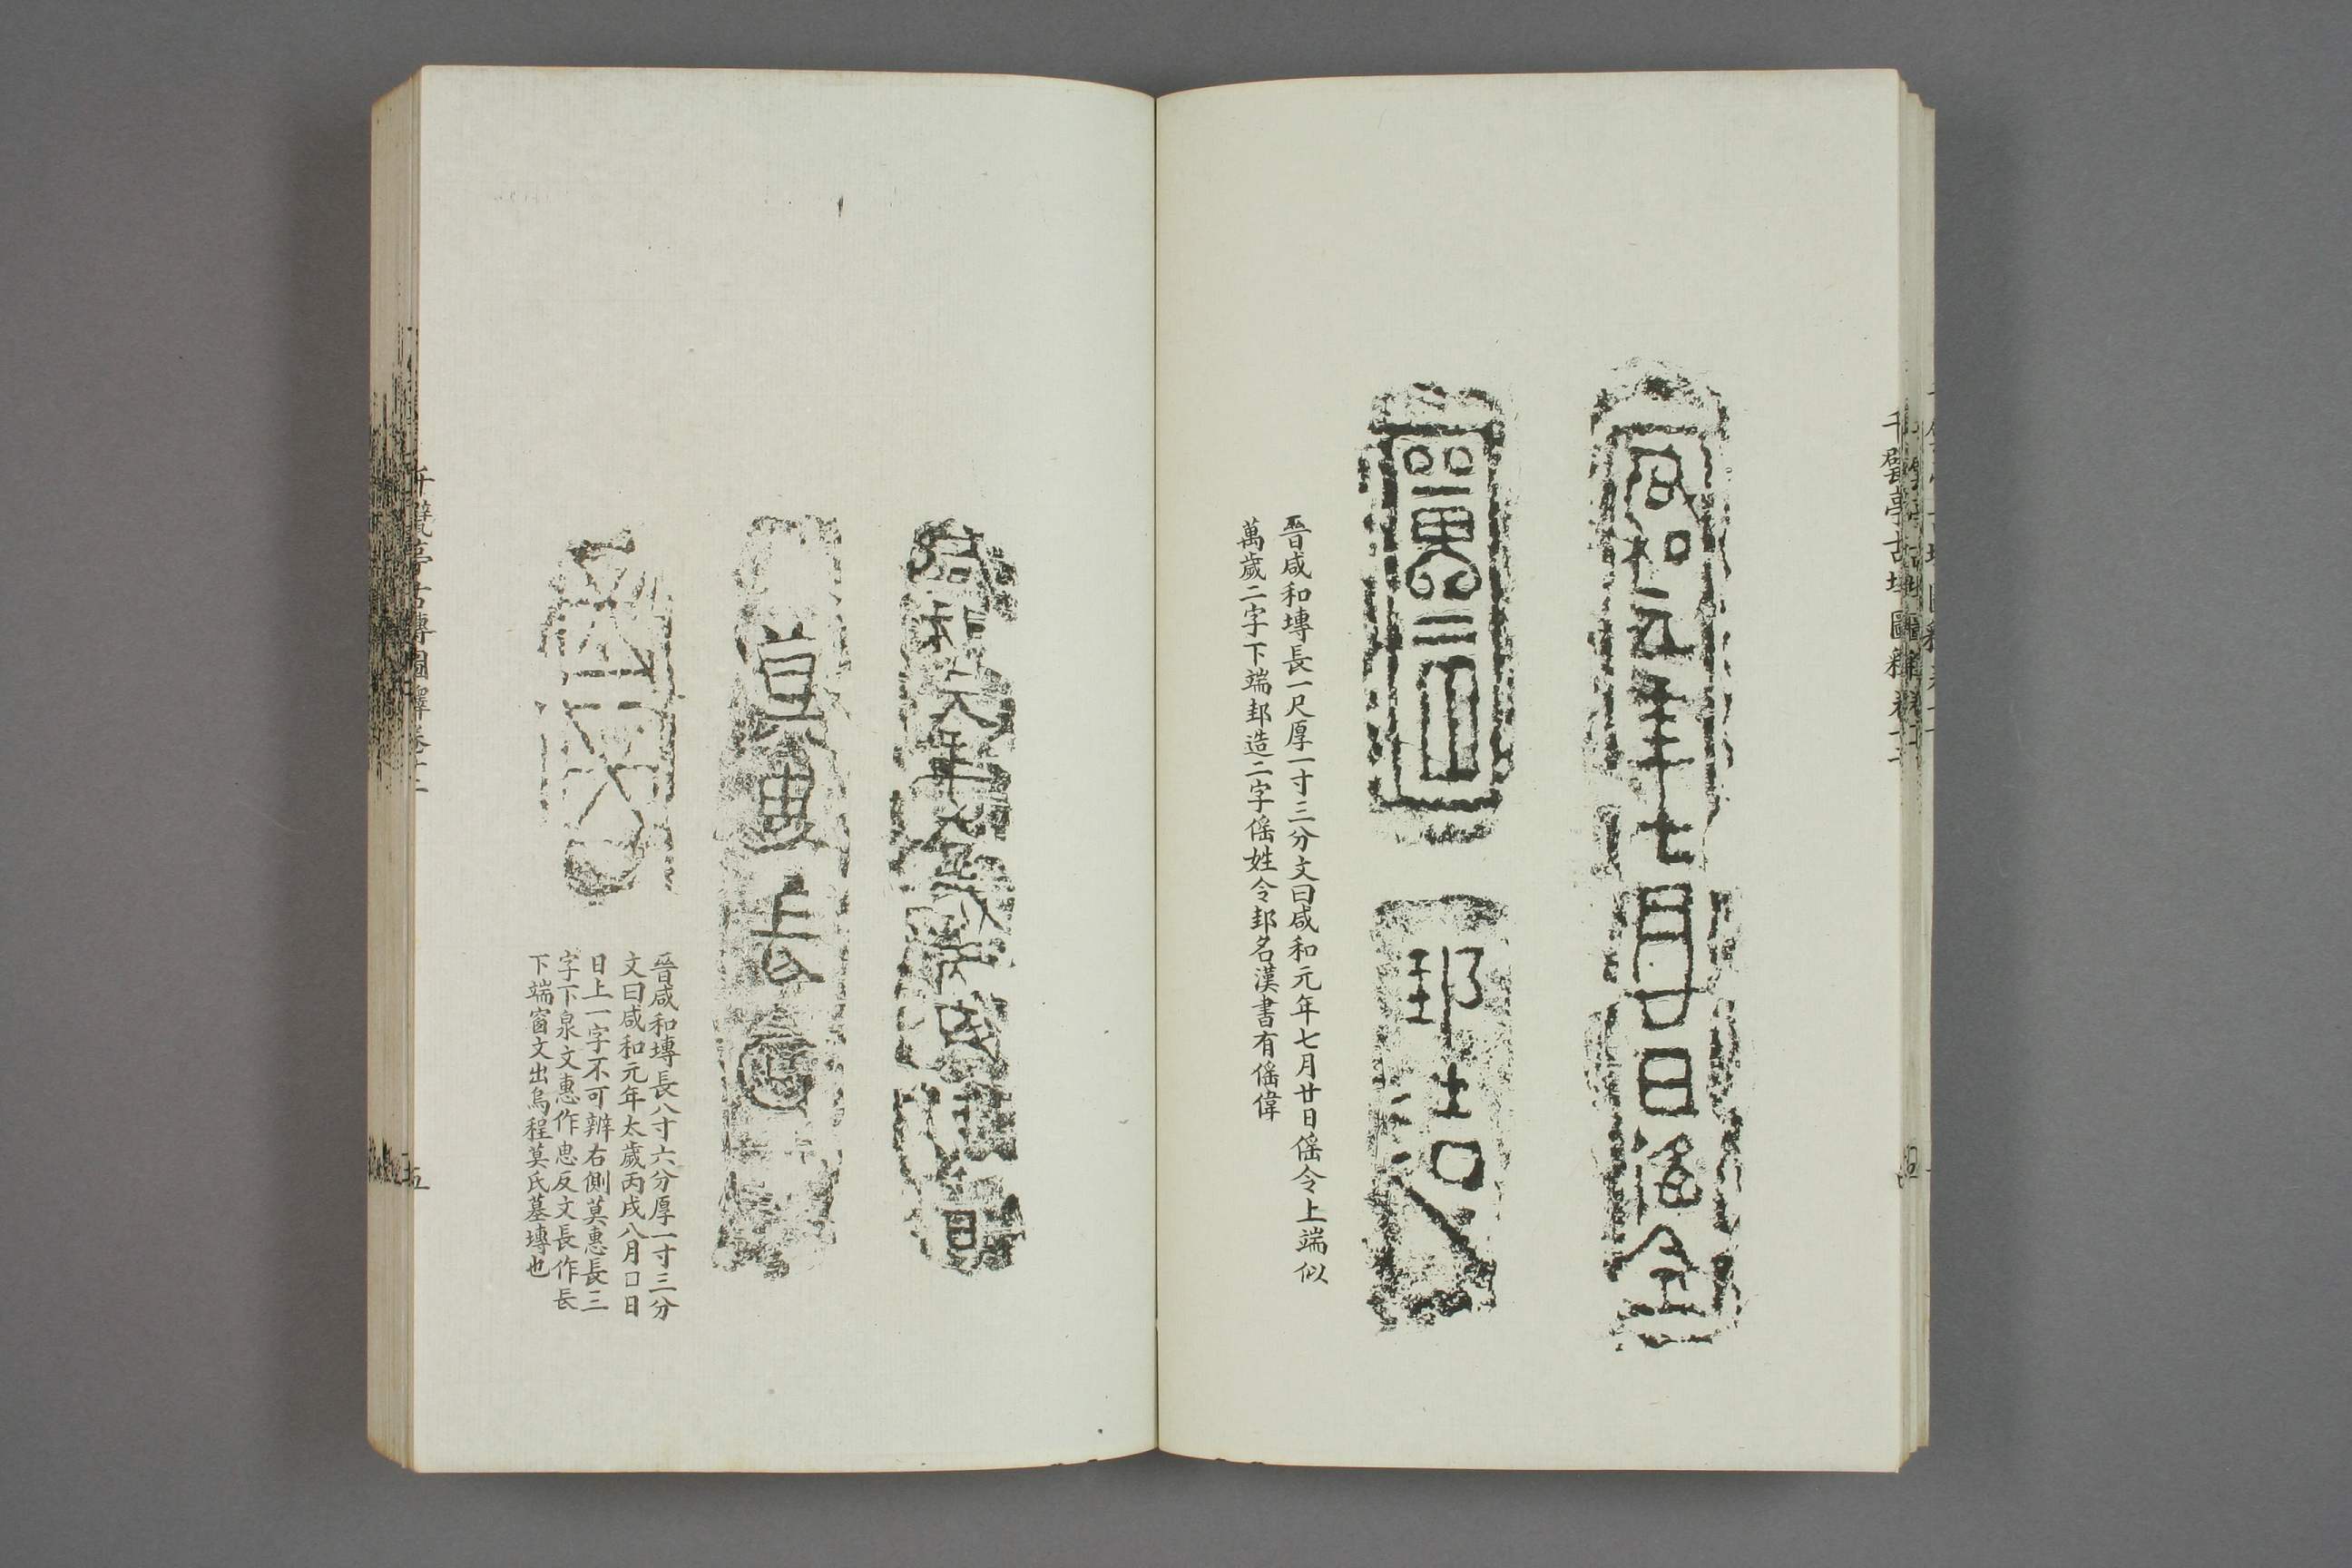 咸和元年七月廿日傜令
𨛜造
晉咸和塼長一尺厚一寸三分文曰咸和元年七月廿日傜令上端似
萬歲二字下端𨛜造二字傜姓令𨛜名漢書有傜偉
莫惠長
晉咸和塼長八寸六分厚一寸三分
文曰咸和元年太歲丙戌八月口日
日上一字不可辨右側莫惠長三
字下泉文惠作恵反文長作長
下端窗文出烏程莫氏墓塼也
千甓亭古塼圖釋卷十二
五